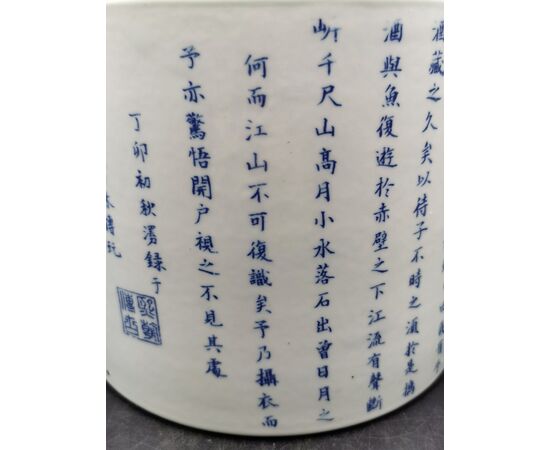 酒藏之久矣以待子不時之須於是攜
酒與魚復遊於赤壁之下江流有聲斷
岸千尺山髙月小水落石出曾日月之
何而江山不可復識矣予乃攝衣而
予亦驚悟開户視之不見其處
丁卯初秋濅錄于